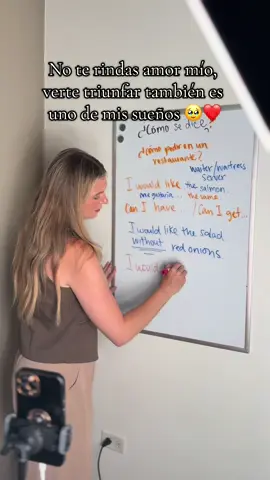 No te rindas amor mío,
verte triunfar también es
uno de mis sueños 🥹❤️
¿Cómo se dice?
¿Cómo pedir en un
restaurante?
waiter/waitress
server
I would like the salmon
me gustaría... the same
Can I have... / Can I get...
I would like the salad
without red onions
I would